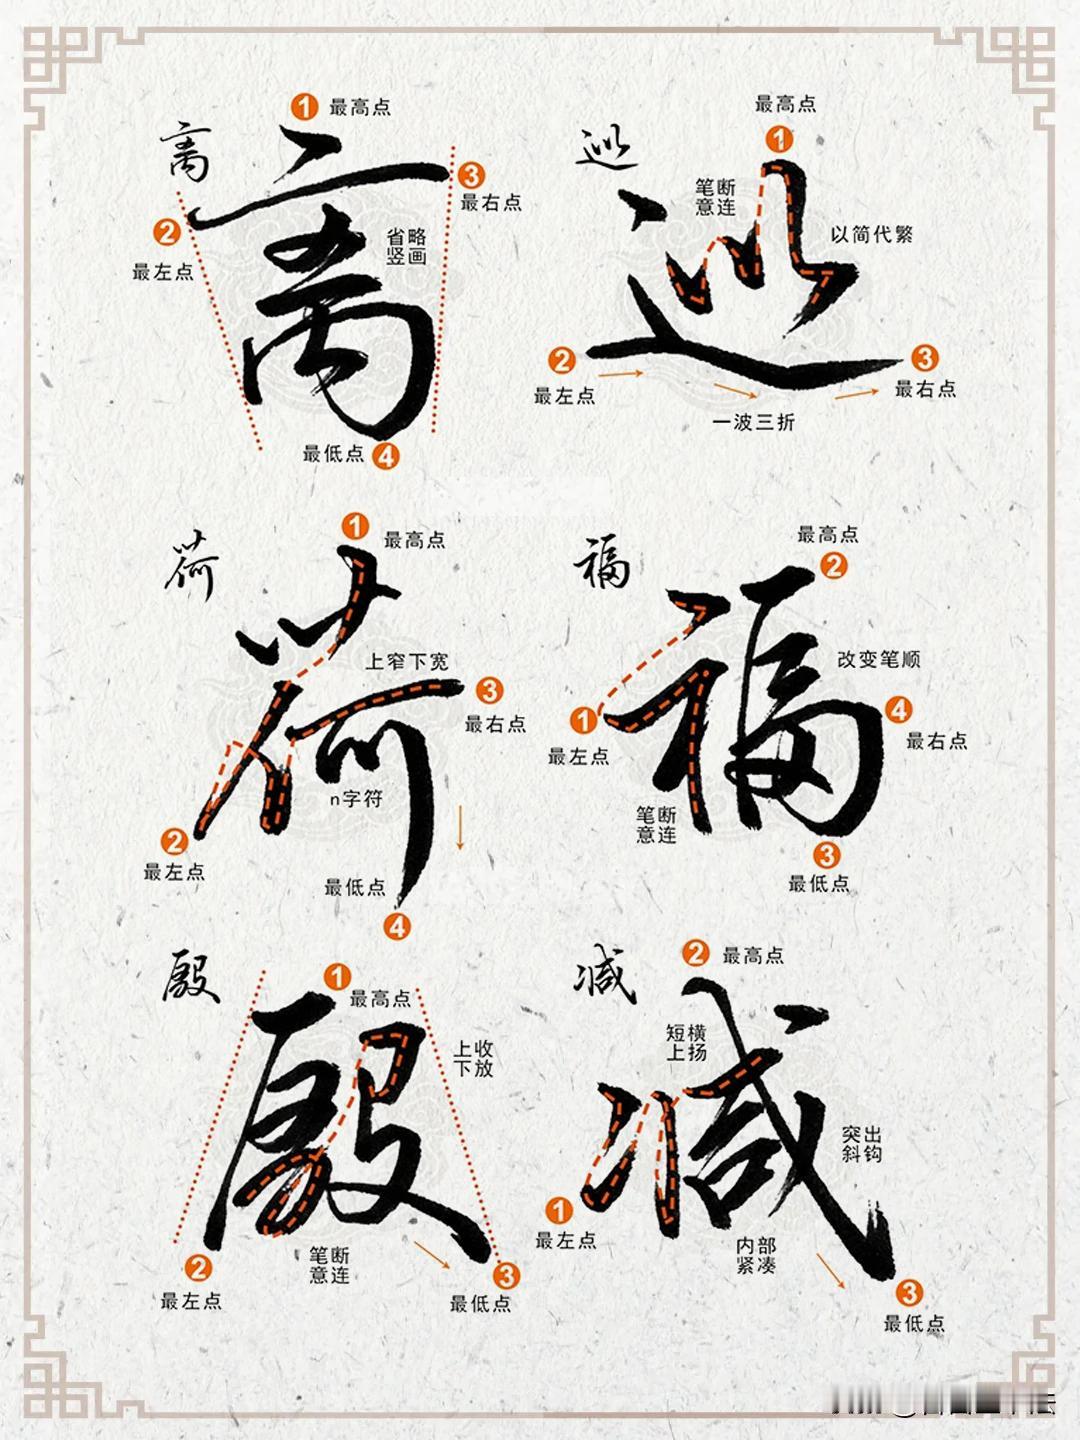 ① 最高点
离
③
最右点
②
最左点
省略
竖画
最低点 ④
最高点
①
巡
笔断
意连
以简代繁
②
最左点
③
最右点
一波三折
①
最高点
荷
上窄下宽
③
最右点
n字符
②
最左点
最低点
④
最高点
②
福
改变笔顺
①
最左点
④
最右点
笔断
意连
③
最低点
殿
①
最高点
上收
下放
②
最左点
笔断
意连
③
最低点
② 最高点
减
短横
上扬
突出
斜钩
①
最左点
内部
紧凑
③
最低点